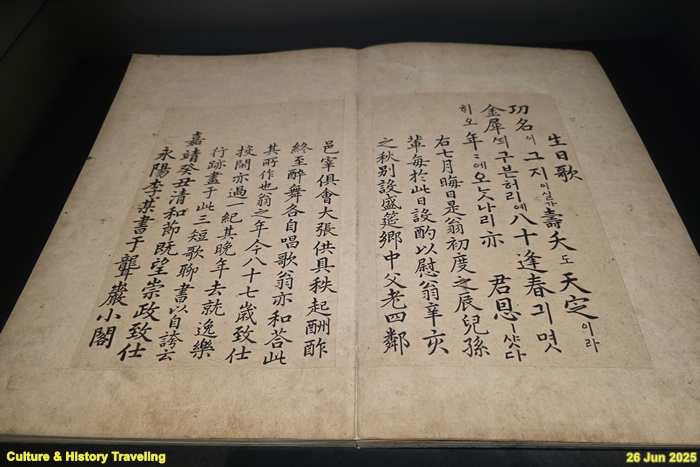 生日歌
功名이 그지 이실가 壽夭도 天定이라
金犀띄 구븐허리예 八十逢春 긔 몃
ᄒᆡ오 年〻에 오ᄂᆞᆺ나리 亦 君恩이샷다
右七月晦日是翁初度之辰兒孫
輩每於此日設酌以慰翁辛亥
之秋別設盛筵鄉中父老四鄰
邑宰俱會大張供具秩起酬酢
終至醉舞各自唱歌翁亦和答此
其所作也翁之年今八十七歲致仕
投閑亦過一紀其晚年去就逸樂
行跡盡于此三短歌聊書以自誇云
嘉靖癸丑清和節既望崇政致仕
永陽李某書于聾巖小閣
Culture & History Traveling
26 Jun 2025